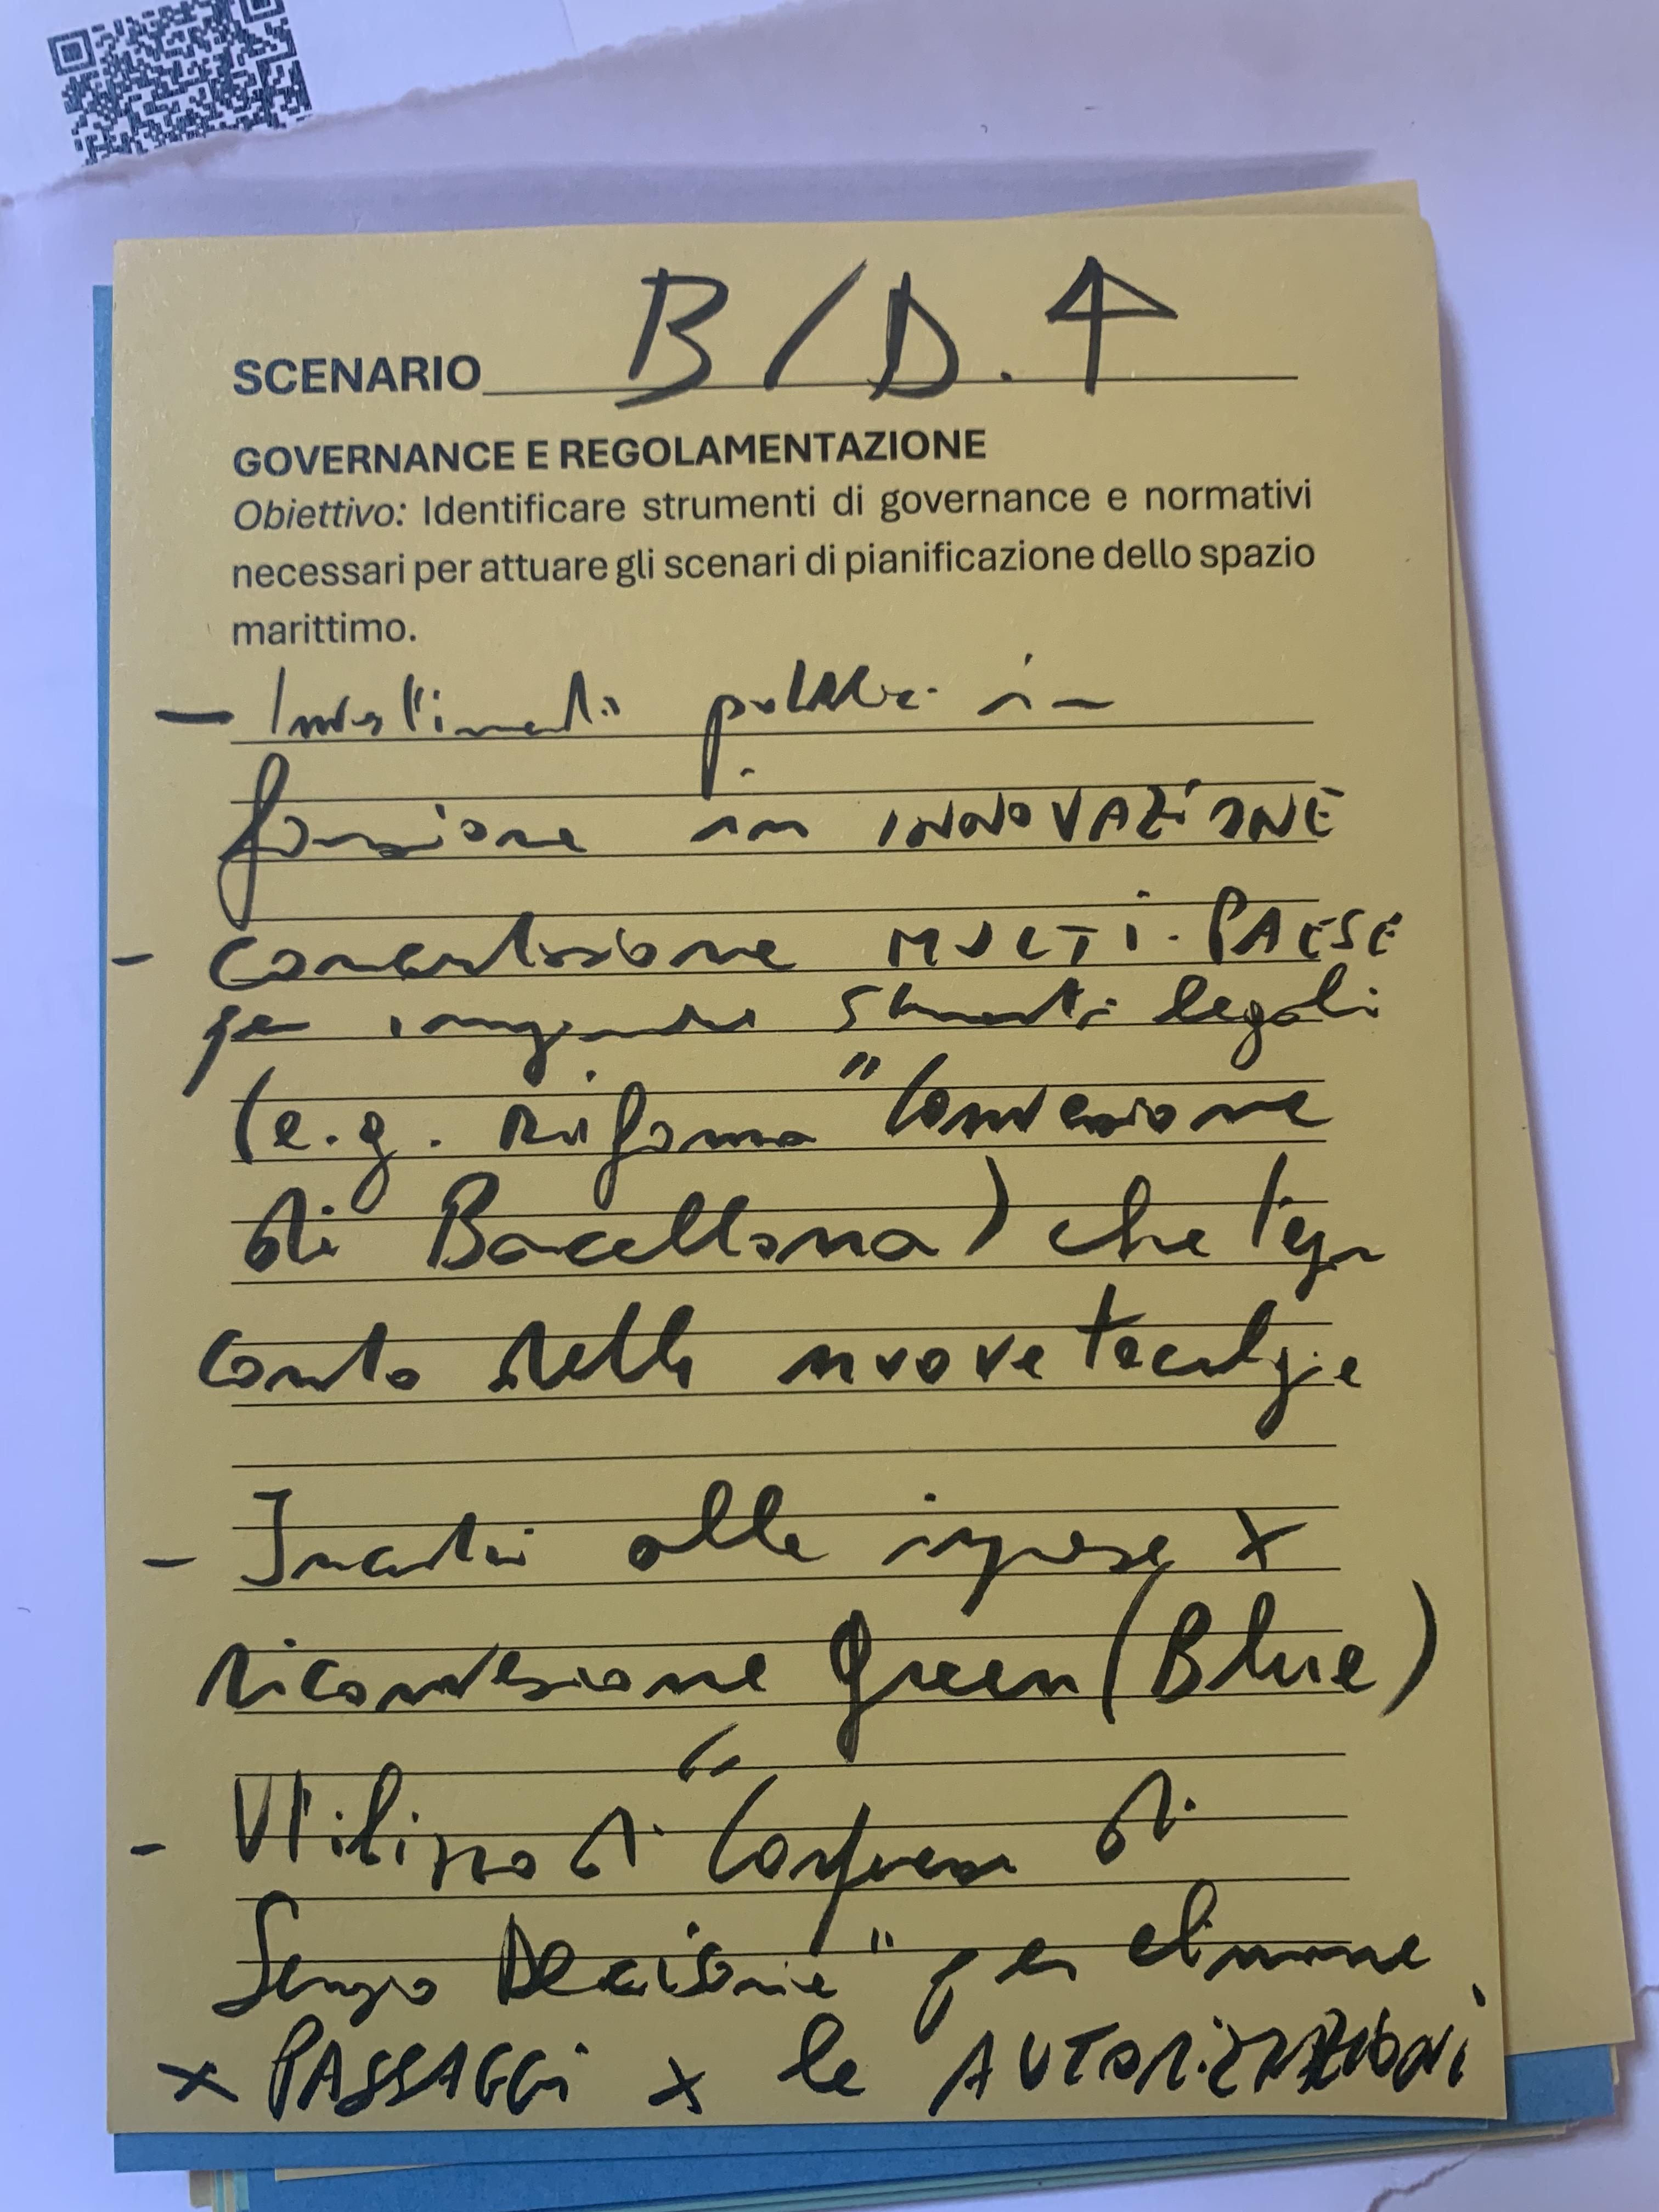 SCENARIO B/D.
GOVERNANCE E REGOLAMENTAZIONE
Obiettivo: Identificare strumenti di governance e normativi
necessari per attuare gli scenari di pianificazione dello spazio
marittimo.
- Investimenti pubblici in
funzione in INNOVAZIONE
- MULTI-PAESE
per strumenti legali
(e.g. Riforma "Convenzione
di Barcellona) che tenga
conto delle nuove tecnologie
- Incentivi alle imprese x
riconversione Green (Blue)
- Utilizzo di "Conferenza di
Servizio Decisorie" per eliminare
x PASSAGGI x le AUTORIZZAZIONI